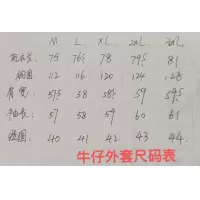 M. L. XL. 2XL. 3XL.
后衣长 75 76.5 78 79.5 81
胸围 112 116 120 124 128
肩宽 57.5 58 58.5 59 59.5
袖长 57 58 59 60 61
领围 40 41 42 43 44
牛仔外套尺码表